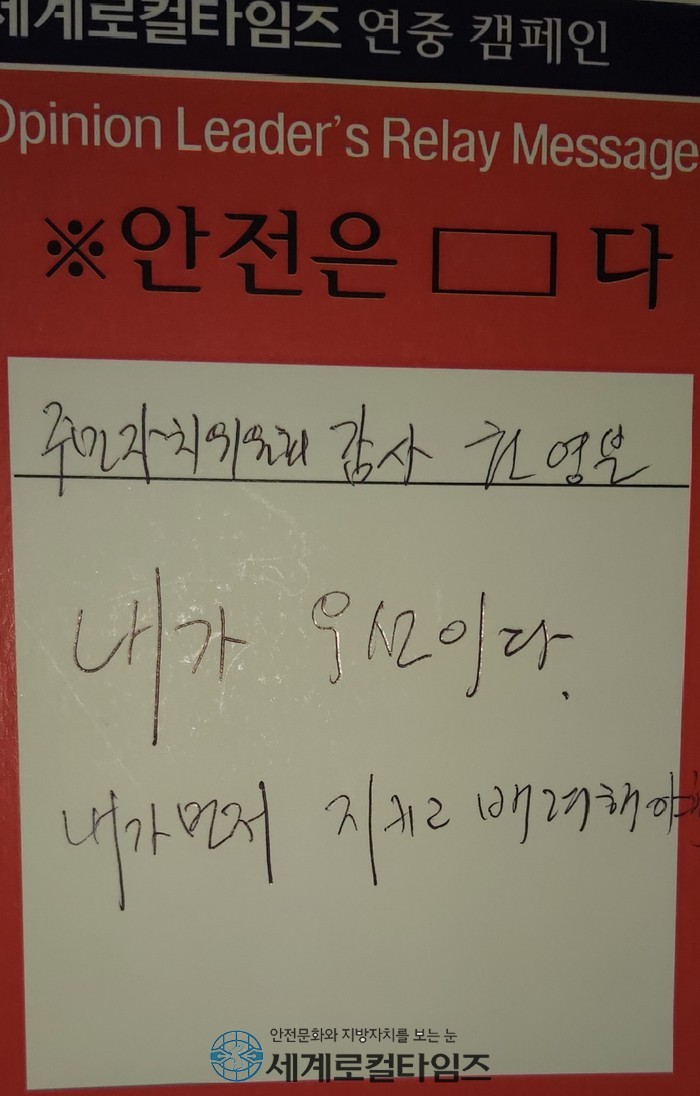 세계로컬타임즈 연중 캠페인
Opinion Leader's Relay Message
※안전은 다
주민자치위원회 감사 영분
내가 우선이다.
내가먼저 지키고 배려해야
안전문화와 지방자치를 보는 눈
세계로컬타임즈